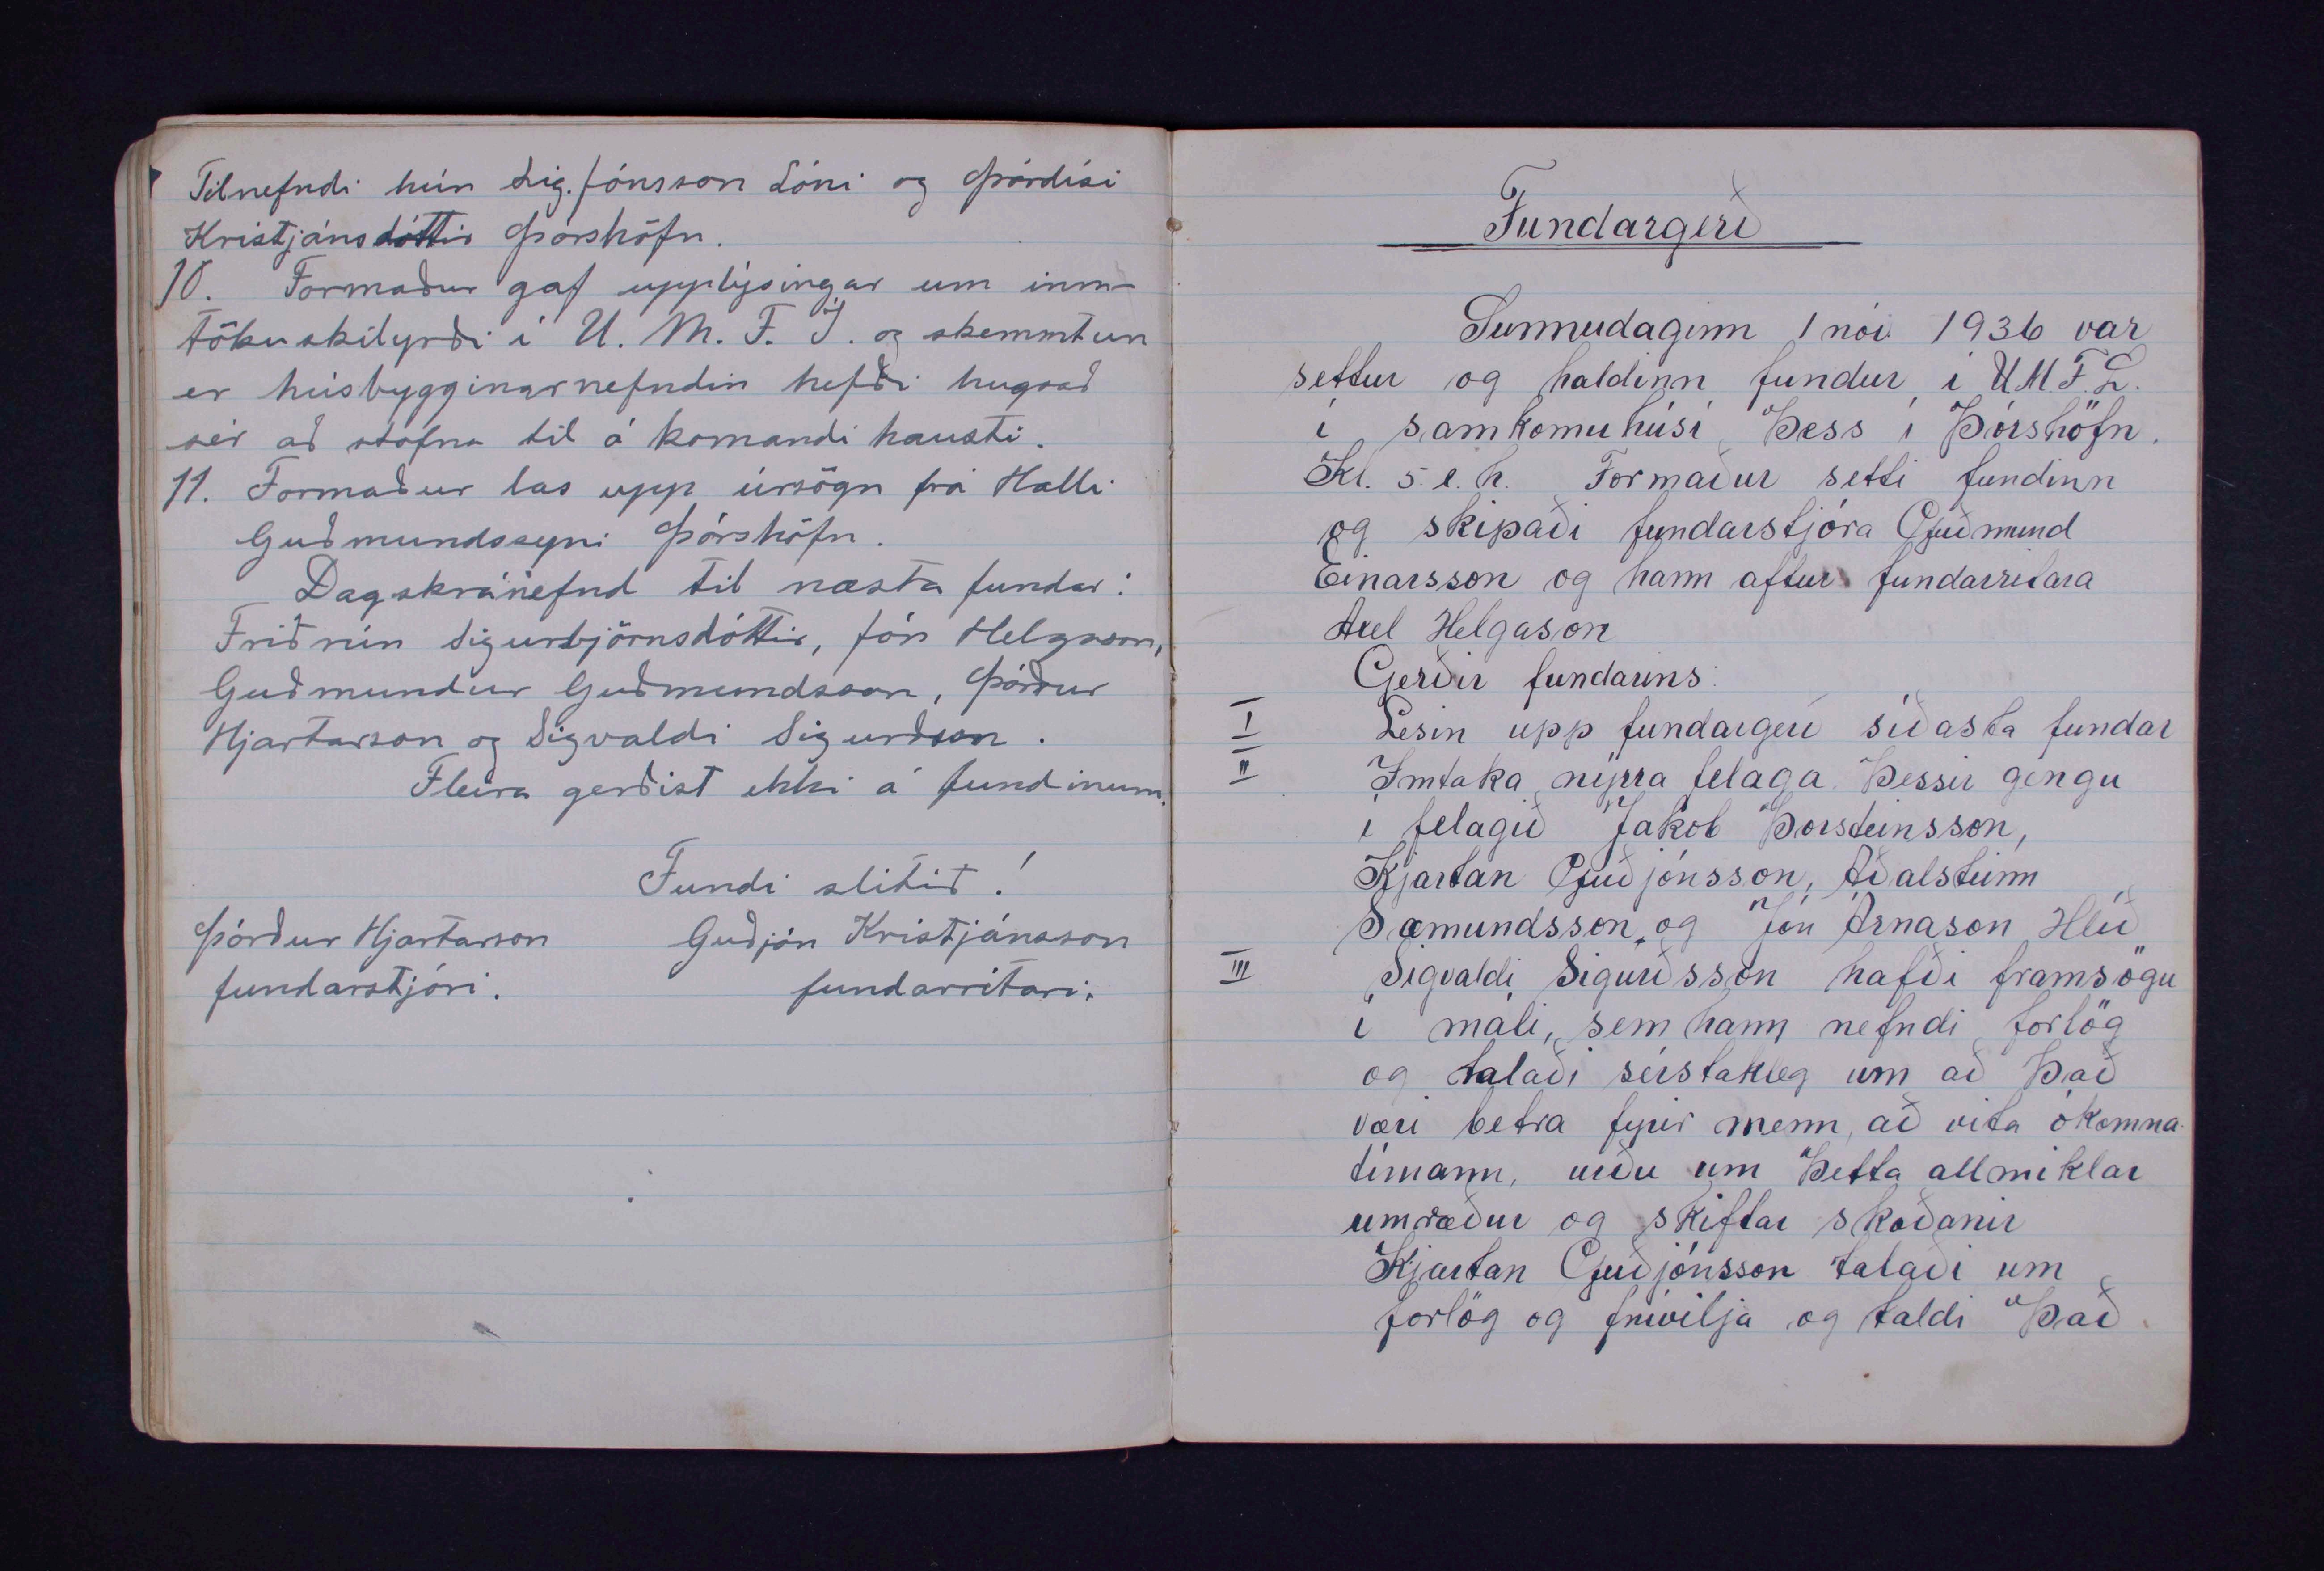 Tilnefndi hún Sig. Jónsson Lóni og Þórdísi
Kristjánsdóttir Þórshöfn.
10. Formaður gaf upplýsingar um inn-
tökuskilyrði í U. M. F. Í. og skemmtun
er húsbygginarnefndin hefði hugsað
sér að stofna til á komandi hausti.
11. Formaður las upp úrsögn frá Halli
Guðmundssyni Þórshöfn.
Dagskránefnd til næsta fundar:
Friðrún Sigurbjörnsdóttir, Jón Helgason,
Guðmundur Guðmundsson, Þórður
Hjartarson og Sigvaldi Sigurðsson.
Fleira gerðist ekki á fundinum.
Fundi slitið!
Þórður Hjartarson Guðjón Kristjánsson
fundarstjóri. fundarritari.
Fundargerð
Sunnudaginn 1 nóv 1936 var
settur og haldinn fundur í U.M.F.L.
í samkomuhúsi þess í Þórshöfn.
Kl. 5. e. h. Formaður setti fundinn
og skipaði fundarstjóra Guðmund
Einarsson og hann aftur fundarritara
Axel Helgason
Gerðir fundarins:
I Lesin upp fundargerð síðasta fundar
II Inntaka nýrra felaga. Þessir gengu
í felagið Jakob Þorsteinsson,
Kjartan Guðjónsson, Aðalsteinn
Sæmundsson, og Jón Árnason Hlíð
III Sigvaldi Sigurðsson hafði framsögu
í máli, sem hann nefndi forlög
og talaði sérstakleg um að það
væri betra fyrir menn, að vita ókomna
tímann, urðu um þetta allmiklar
umræður og skiftar skoðanir
Kjartan Guðjónsson talaði um
forlög og frívilja og taldi það